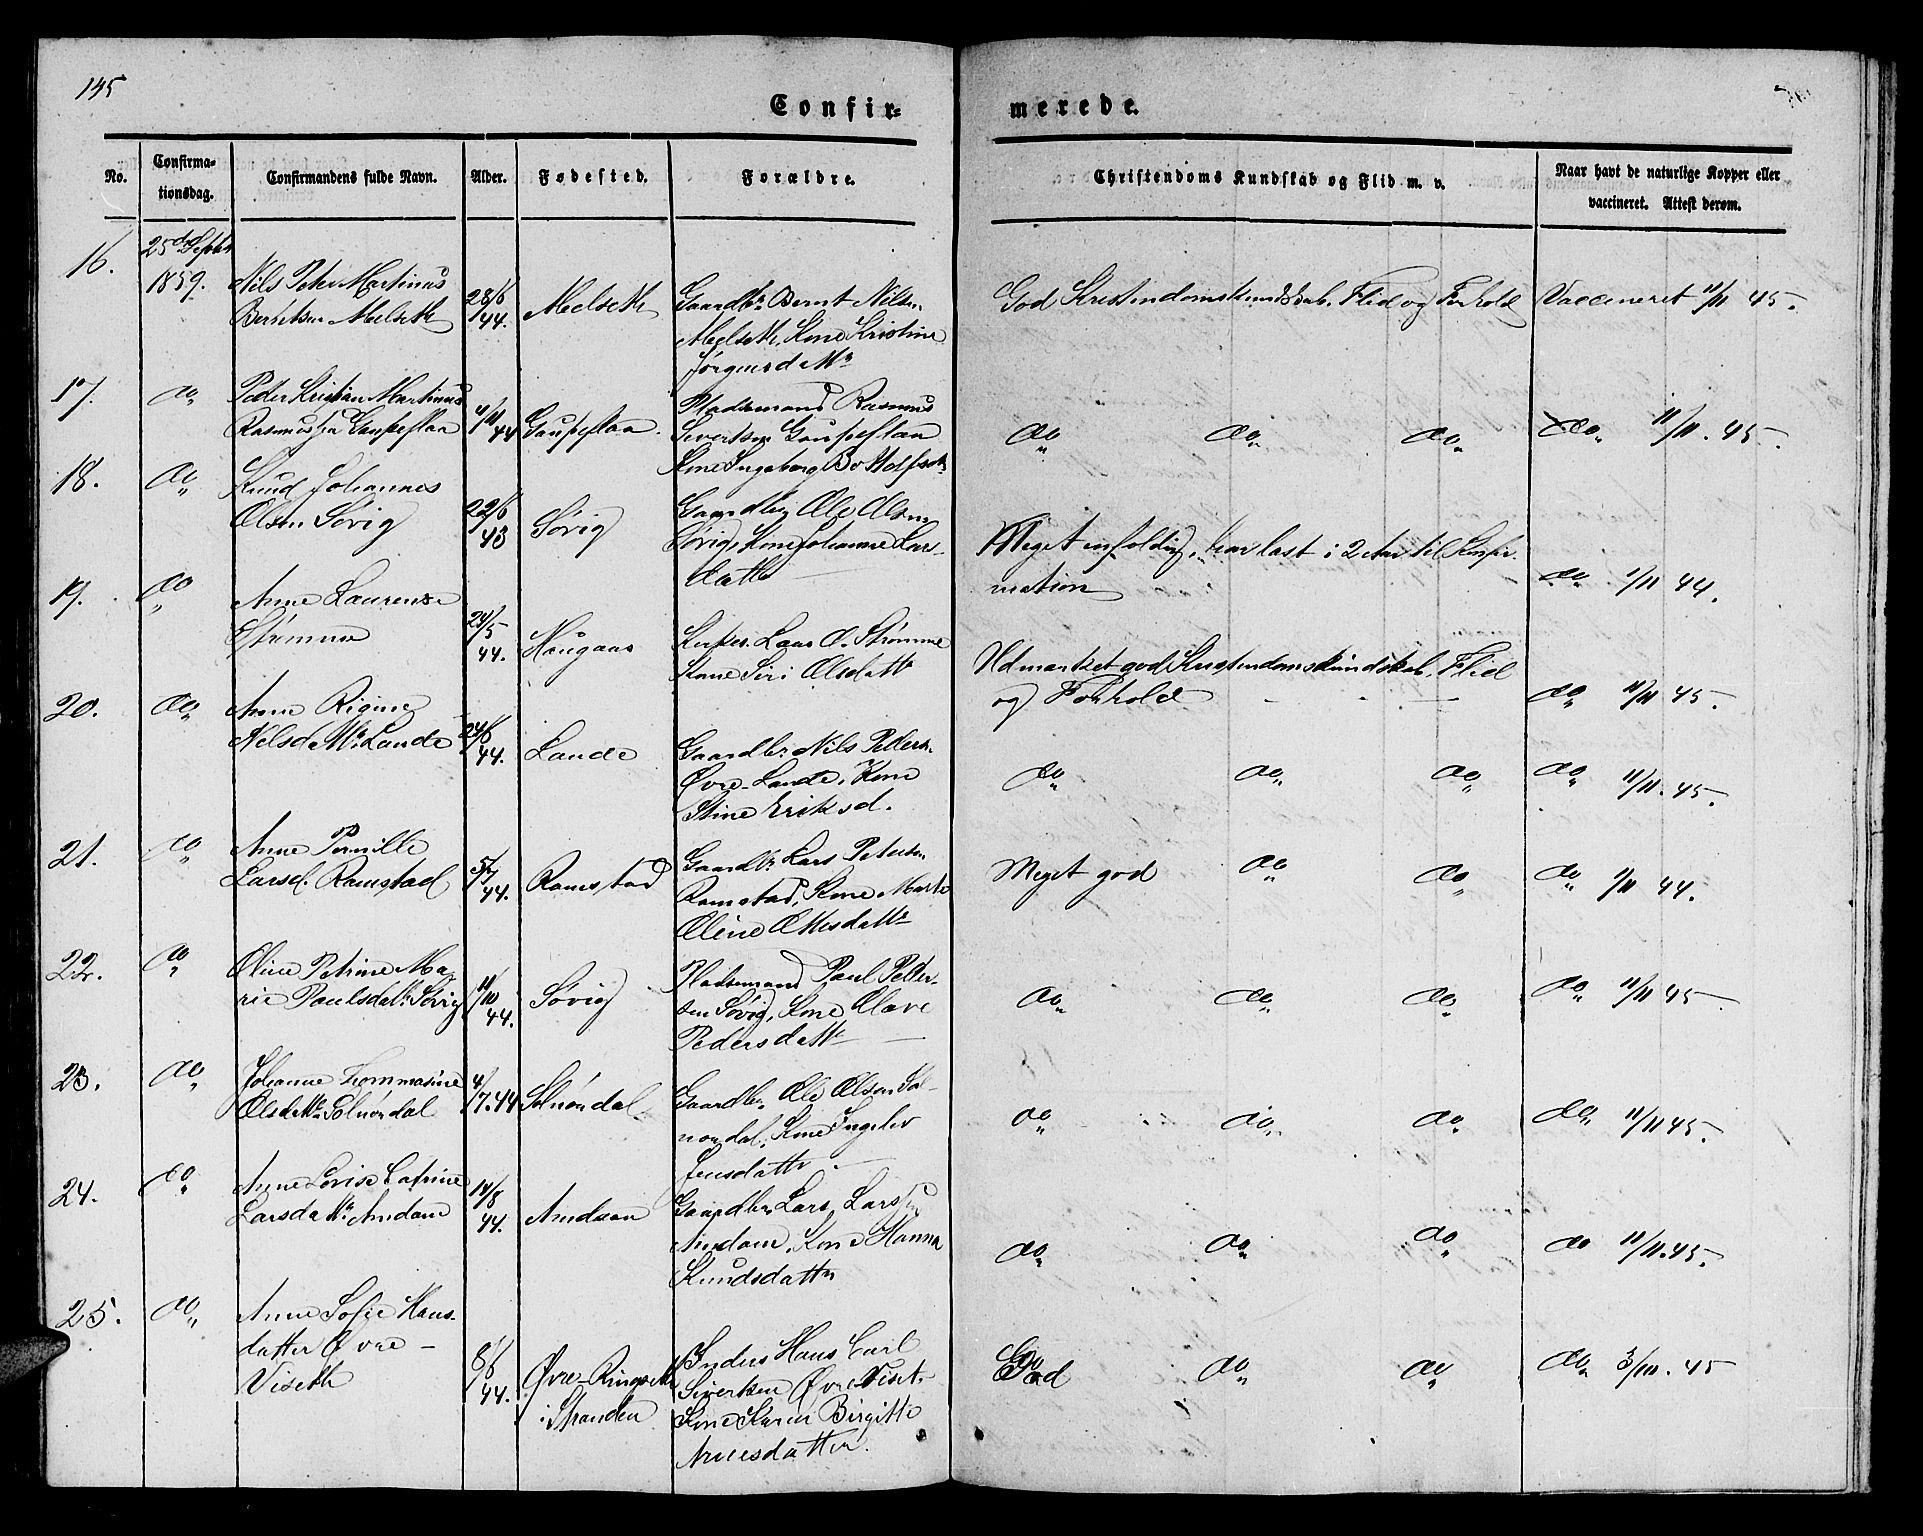 135
Confir-
merede.
No.
Confirma-
tionsdag.
Confirmandens fulde Navn.
Alder.
Fødested.
Forældre.
Christendoms Kundskab og Flid m. v.
Naar havt de naturlige Kopper eller
vaccineret. Attest derom.
16.
25de Septbr
1859.
Nils Peter Martinus
Berntsen Melseth
28/6
44.
Melseth
Gaardbr. Bernt Nilsen
Melseth, Kone Kristine
Jørgensdattr
God Kristendomskundskab, Flid og Forhold
Vaccineret 11/11 45.
17.
do
Peder Kristian Martinus
Rasmussen Gaupeflaa
4/11
44
Gaupeflaa
Pladsemand Rasmus
Sivertsen Gaupeflaa
Kone Ingeborg Bottolfsd.
do do do
do 11/11. 45.
18.
do
Knud Johannes
Olsen Søvig
22/6
43
Søvig
Gaardbr. Ole Olsen
Søvig, Kone Johanne Lars-
datter
Meget enfoldig, har læst i 2 Aar til Konfir-
mation
do 1/11 44.
19.
do
Anne Laurense
Strømme
24/5
44.
Haugaas
Kirkes. Laas O. Strømme
Kone Siri Olsdattr
Udmærket god Kristendomskundskab, Flid
og Forhold
do 11/11 45.
20.
do
Anne Rigine
Nilsdattr Lande
24/6
44.
Lande
Gaardbr. Nils Peders.
Øvre-Lande, Kone
Stine Eriksd.
do do do
do 11/11. 45.
21.
do
Anne Pernille
Larsd. Ramstad
5/7
44.
Ramstad
Gaardbr. Lars Petersen
Ramstad, Kone Marte
Oline Ottesdattr
Meget god do do
do 1/11 44.
22.
do
Oline Petrine Ma-
rie Paulsdattr Søvig
11/10
44.
Søvig
Pladsemand Paul Peder-
sen Søvig, Kone Olave
Pedersdattr
do do do
do 11/11 45.
23.
do
Johanne Thommasine
Olsdattr Solnørdal
4/7. 44
Solnørdal
Gaardbr. Ole Olsen Sol-
nørdal, Kone Ingelev
Jensdattr
do do do
do 11/11 45.
24.
do
Anne Lovise Catrine
Larsdattr Amdam
14/8
44.
Amdam
Gaardbr. Lars Larssen
Amdam, Kone Hanna
Knudsdatter
do do do
do 11/11. 45.
25.
do
Anne Sofie Hans-
datter Øvre-
Viseth
8/6
44.
Øvre-Ringseth
i Stranden
Inders Hans Carl
Sivertsen Øvre Viset.
Kone Karen Birgitte
Arnesdatter.
God do do
do 3/10. 45